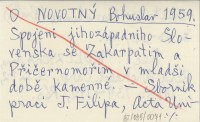 NOVOTNÝ Bohuslav 1959.
Spojení jihozápadního Slo-
venska se Zakarpatím a
Přičernomořím v mladší
době kamenné. — Sborník
prací J. Filipa, Acta Uni-